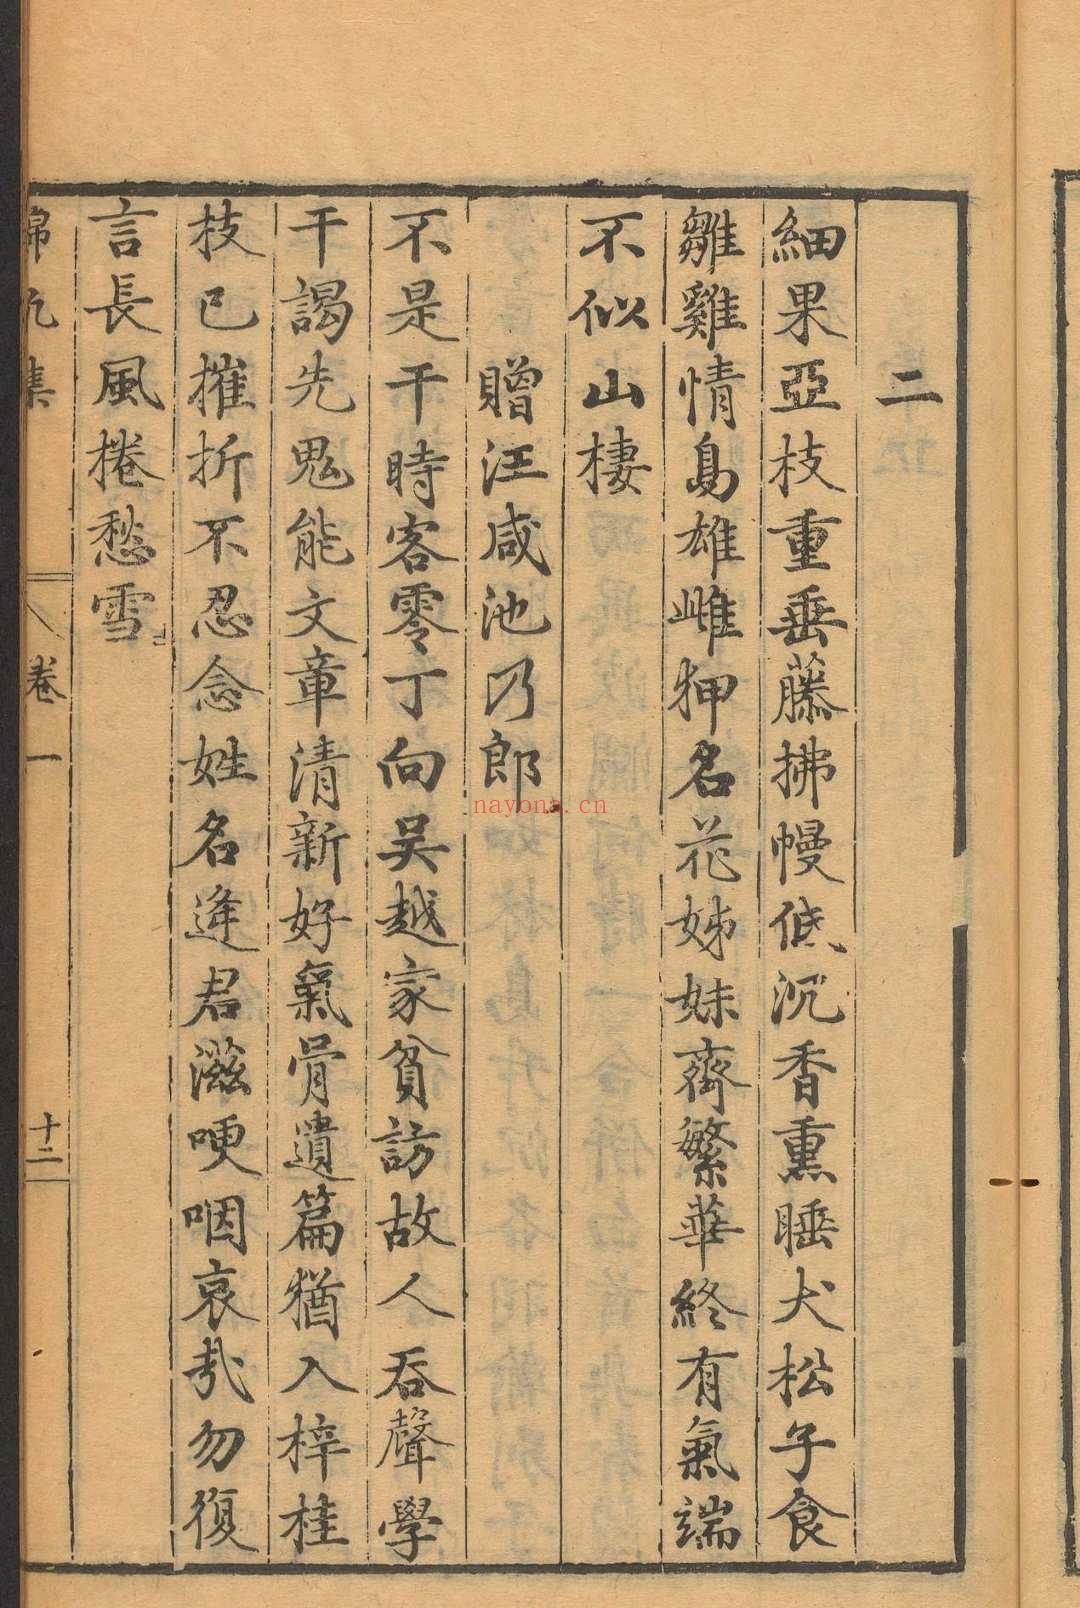 二
細果亞枝重垂藤拂幔低沉香熏睡犬松子食
雛雞情島雄雌狎名花姊妹齊繁華終有氣端
不似山棲
贈汪咸池乃郎
不是干時客零丁向吳越家貧訪故人吞聲學
干謁先鬼能文章清新好氣骨遺篇猶入梓桂
枝已摧折不忍念姓名逢君滋哽咽哀哉勿復
言長風捲愁雪
集
卷一
十二
nayona.cn